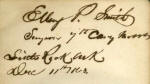 Ellery P. Smith
Surgeon 7th Cav Mo Vols
Little Rock Ark
Dec 11th 1863